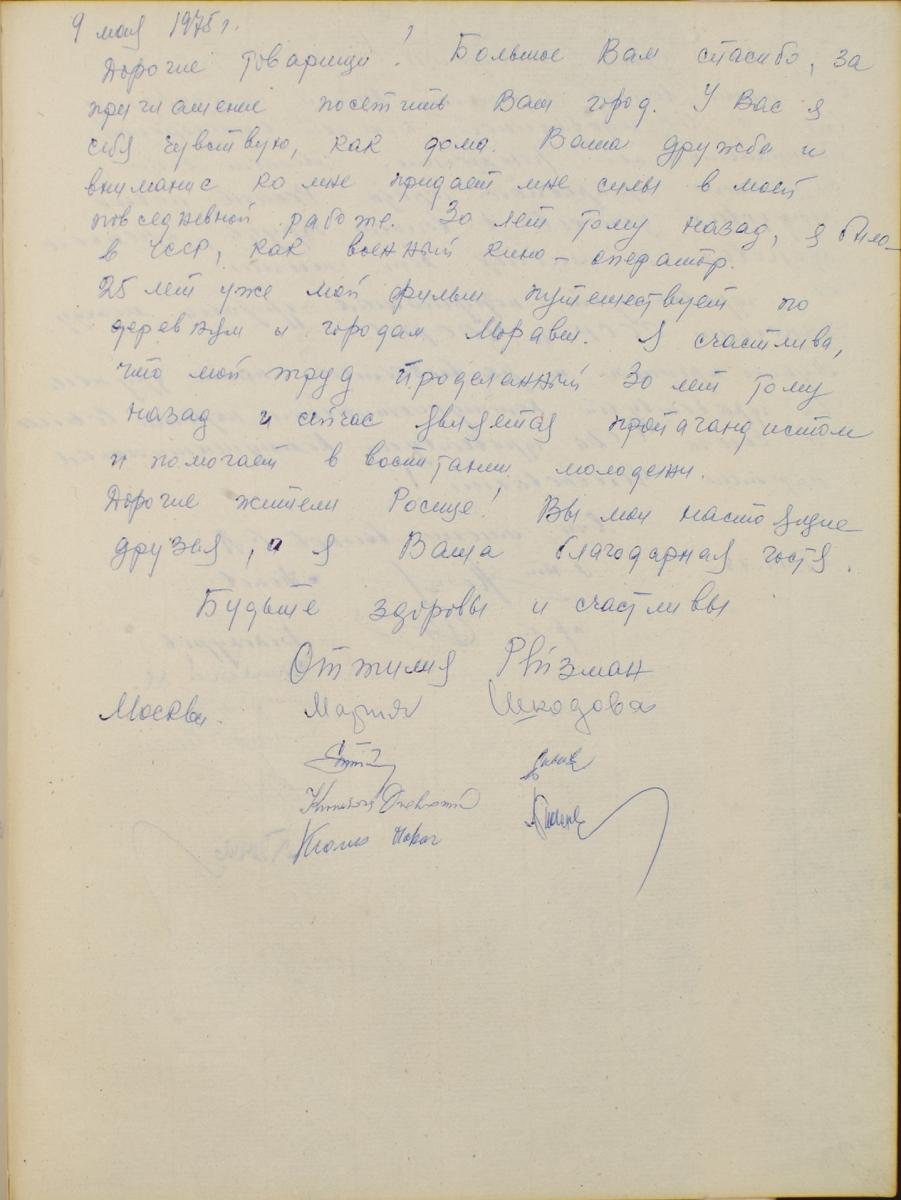 9 мая 1975 г.
Дорогие товарищи! Большое Вам спасибо, за
приглашение посетить Ваш город. У Вас я
себя чувствую, как дома. Ваша дружба и
внимание ко мне придает мне силы в моей
повседневной работе. 30 лет тому назад, я была
в ЧССР, как военный кино-оператор.
25 лет уже мой фильм путешествует по
деревням и городам Моравии. Я счастлива,
что мой труд проделанный 30 лет тому
назад и сейчас является пропагандистом
и помогает в воспитании молодежи.
Дорогие жители Росице! Вы мои настоящие
друзья, а я Ваша благодарная гостя.
Будьте здоровы и счастливы
Оттилия Рейзман
Москва. Мария Шкодова